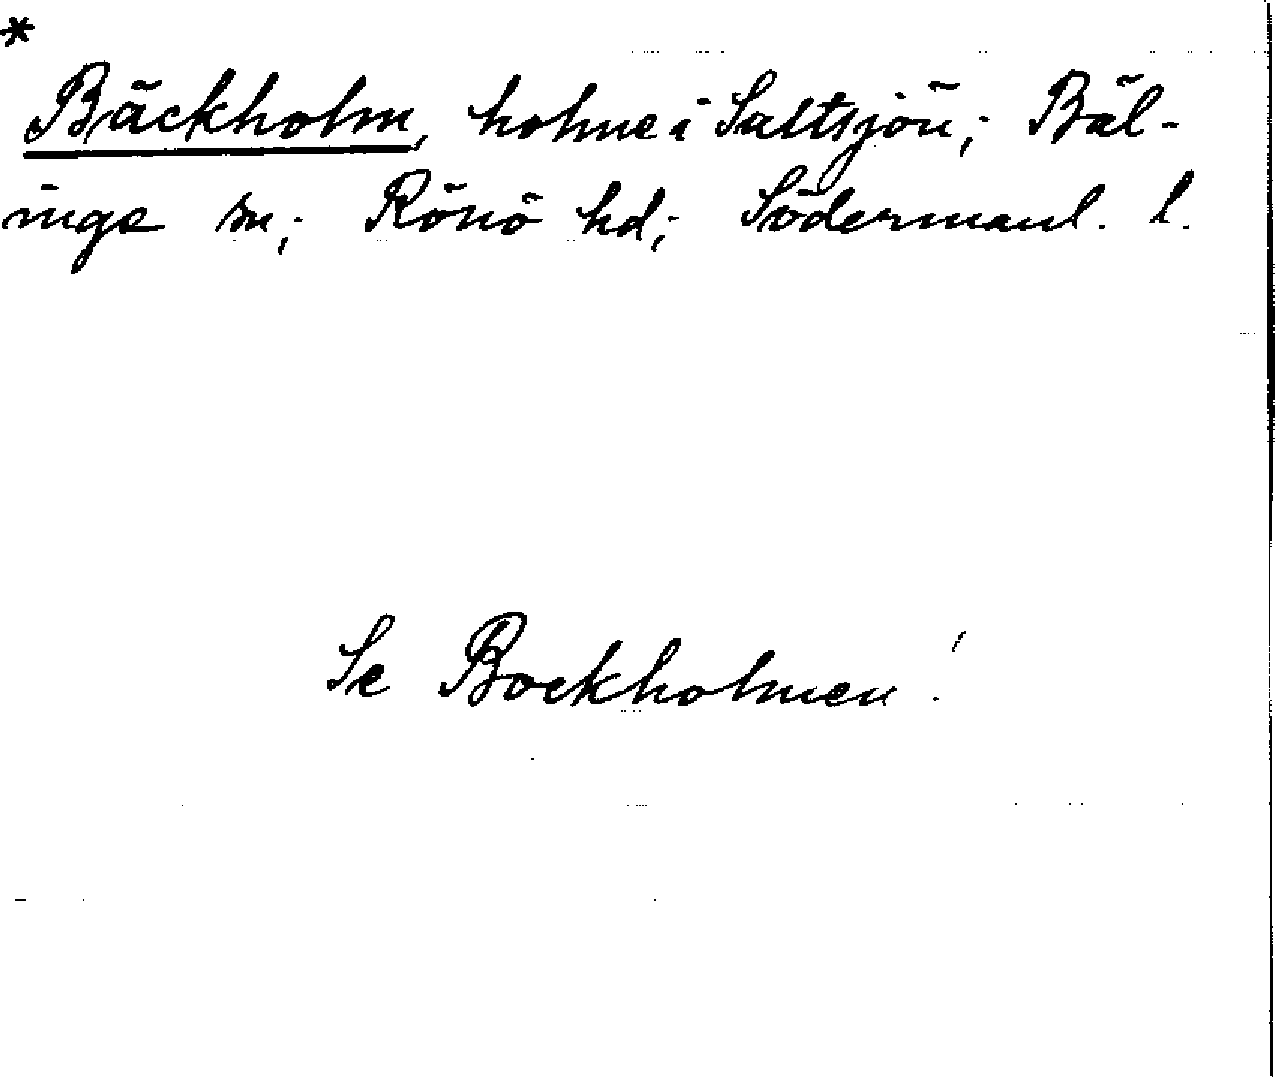 *
Bäckholm, holme i Saltsjön; Bäl-
ings sn; Rönö hd; Södermanl. l.
Se Bockholmen!